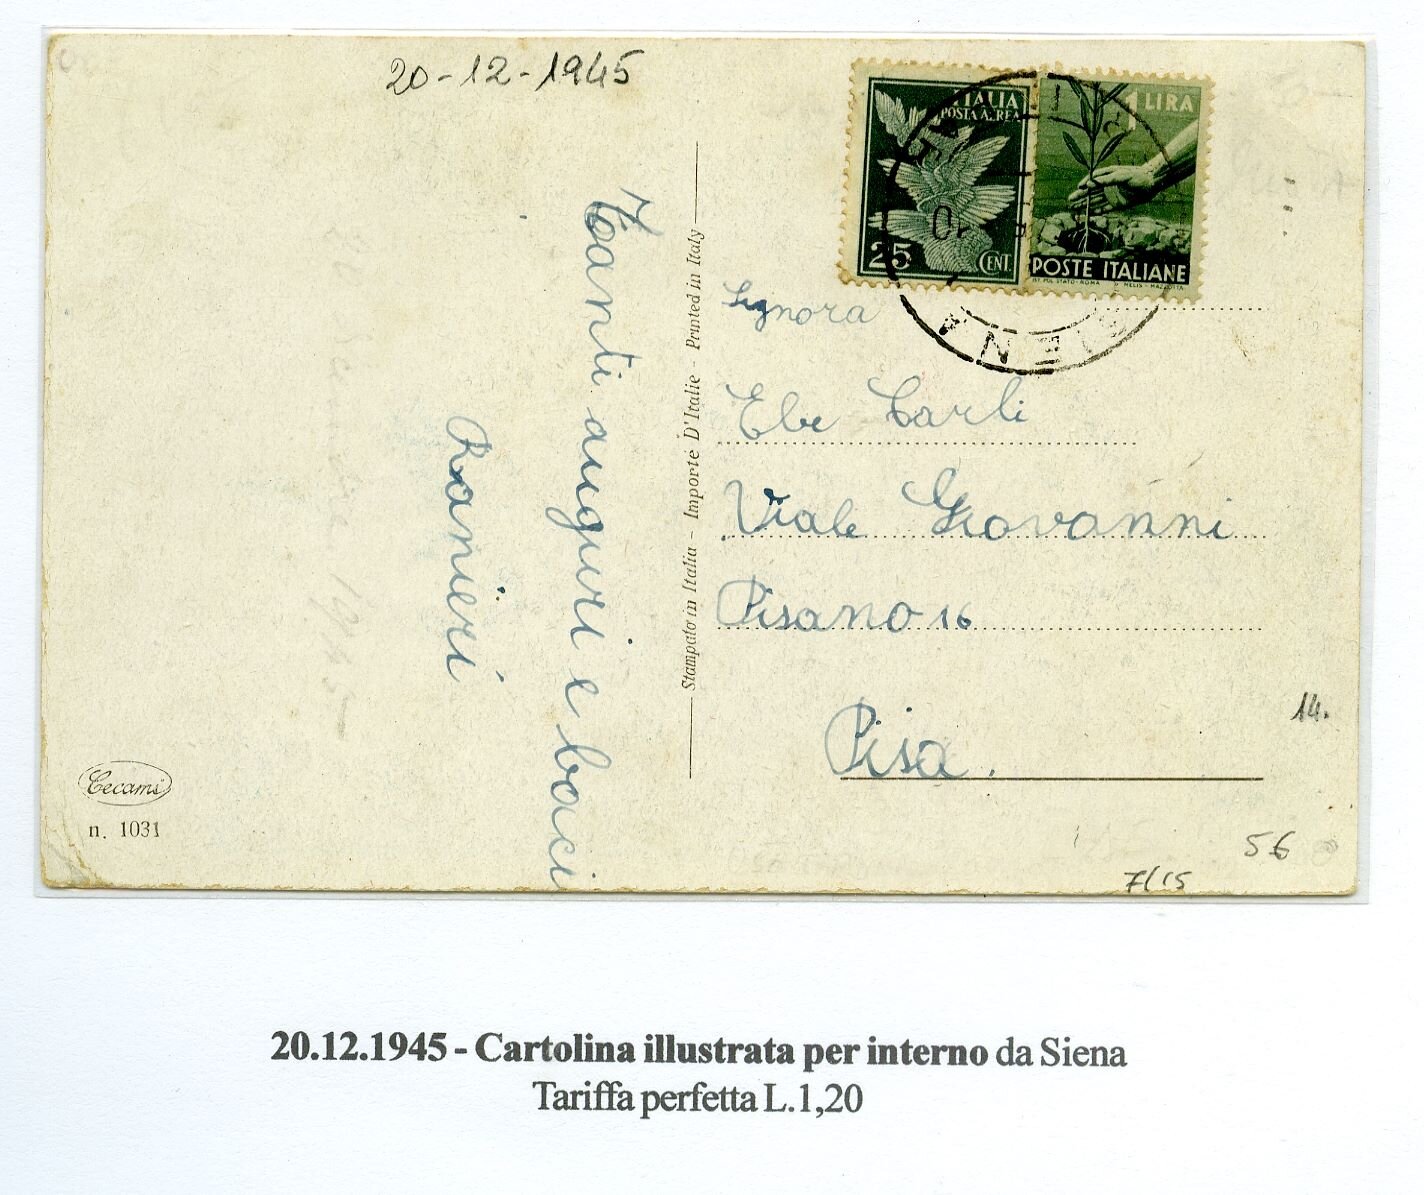 20-12-1945
ITALIA
POSTA AEREA
25 CENT.
1 LIRA
POSTE ITALIANE
IST. POL. STATO - ROMA
SIENA
Tanti auguri e baci
Ranieri
Stampato in Italia - Importé D'Italie - Printed in Italy
Signora
Ebe Carli
Viale Giovanni
Pisano 16
Pisa.
14.
Cecami
n. 1031
5€
7/15
20.12.1945 - Cartolina illustrata per interno da Siena
Tariffa perfetta L.1,20